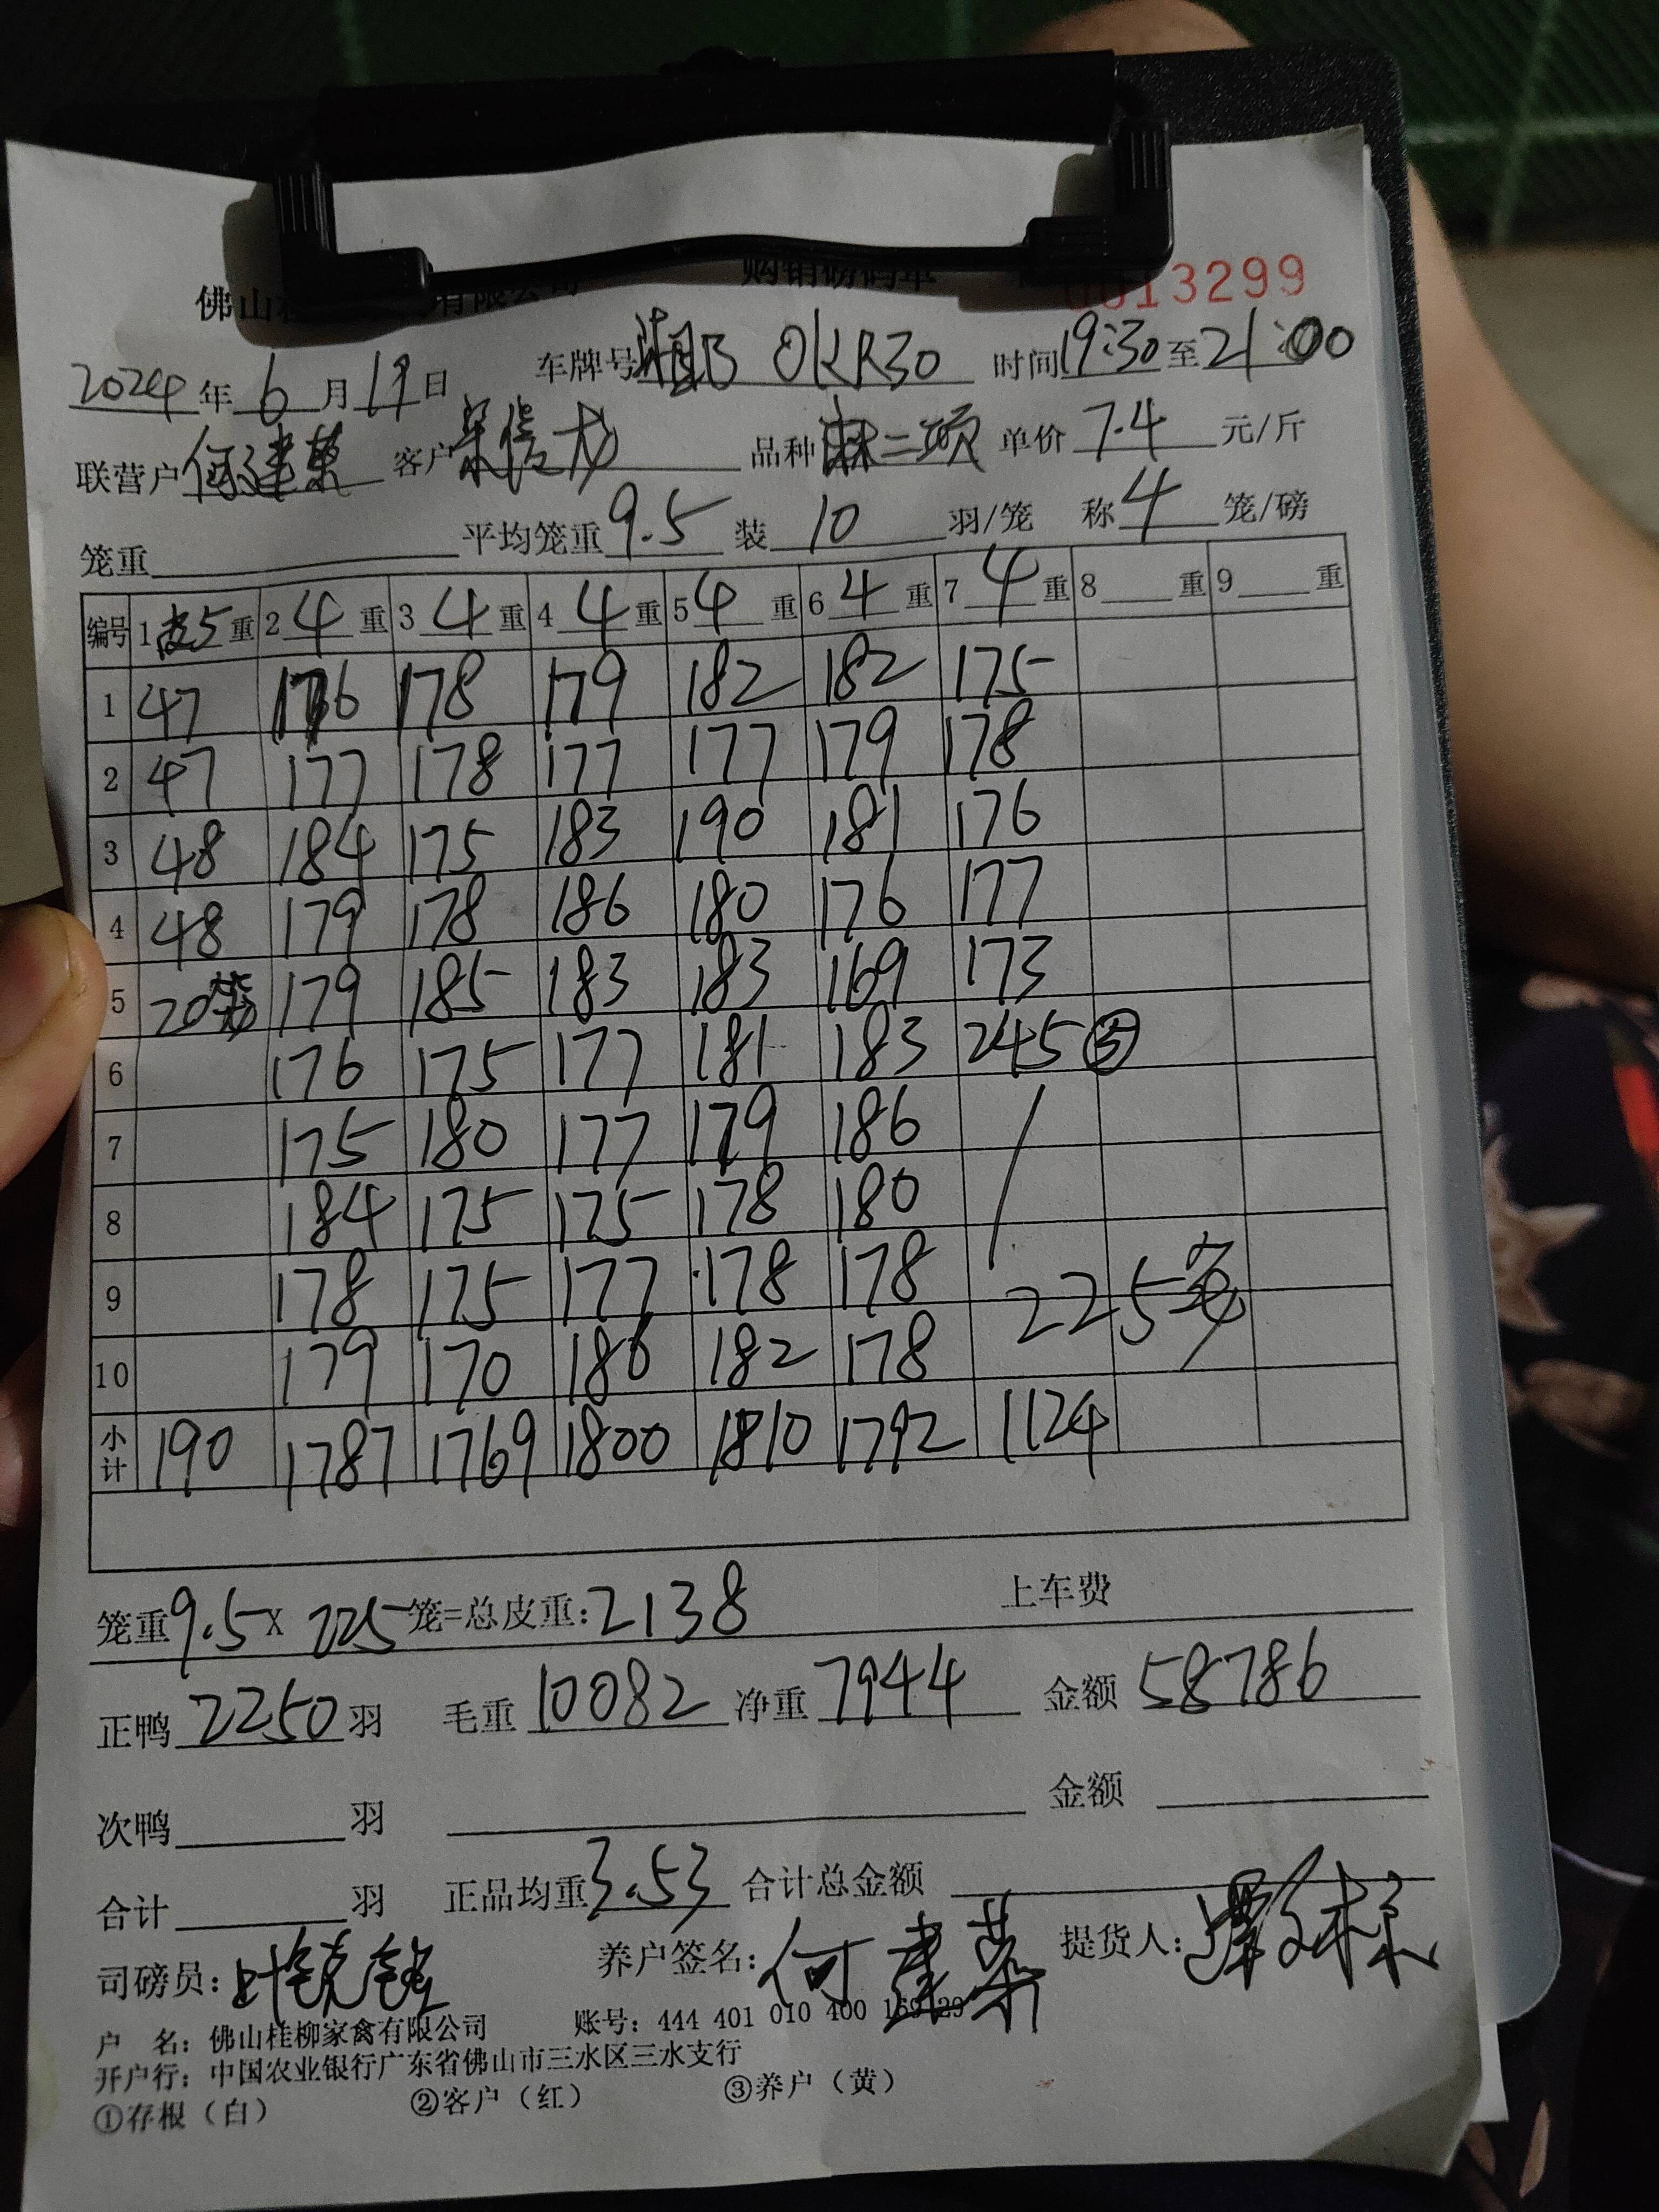 佛山 有限公司 购销磅码单 0013299
2024年6月19日 车牌号 湘B 0KR30 时间19:30至21:00
联营户何建荣 客户 品种麻二项 单价7.4元/斤
笼重 平均笼重9.5 装10羽/笼 称4笼/磅
编号 1皮5重 2 4重 3 4重 4 4重 5 4重 6 4重 7 4重 8 重 9 重
1 47 176 178 179 182 182 175
2 47 177 178 177 177 179 178
3 48 184 175 183 190 181 176
4 48 179 178 186 180 176 177
5 20笼 179 185 183 183 169 173
6 176 175 177 181 183 245 ⑤
7 175 180 177 179 186
8 184 175 175 178 180
9 178 175 177 178 178 225笼
10 179 170 186 182 178
小计 190 1787 1769 1800 1810 1792 1124
笼重9.5×225笼=总皮重:2138 上车费
正鸭2250羽 毛重10082 净重7944 金额58786
次鸭 羽 金额
合计 羽 正品均重3.53 合计总金额
司磅员: 养户签名:何建荣 提货人:
户 名:佛山桂柳家禽有限公司 账号:444 401 010 400 169 29
开户行:中国农业银行广东省佛山市三水区三水支行
①存根(白) ②客户(红) ③养户(黄)